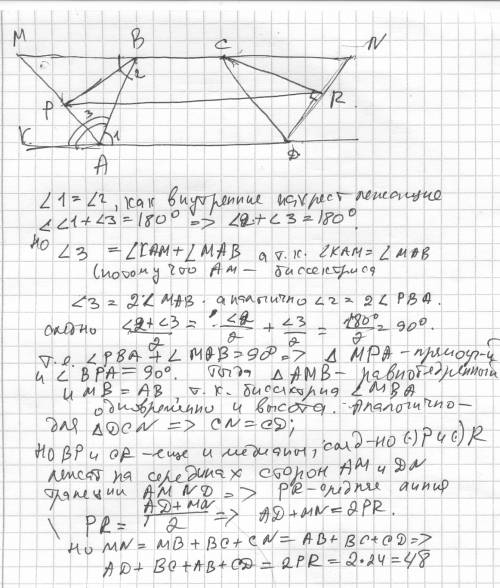 M B C N
2
P 3 R
K 1
A D
∠1 = ∠2, как внутренние накрест лежащие
∠1 + ∠3 = 180° => ∠2 + ∠3 = 180°.
но ∠3 = ∠KAM + ∠MAB а т.к. ∠KAM = ∠MAB
(потому что AM – биссектриса
∠3 = 2∠MAB. аналогично ∠2 = 2∠PBA.
(∠2+∠3)/2 = ∠2/2 + ∠3/2 = 180°/2 = 90°.
т.е. ∠PBA + ∠MAB = 90° => △ MPA – прямоуг-й
и ∠BPA = 90°. Тогда △AMB – равнобедренный
и MB = AB, т.к. биссектриса ∠MBA
одновременно и высота. Аналогично–
для △DCN => CN = CD;
но BP и CR – еще и медианы, след-но (·)P и (·)R
лежат на серединах сторон AM и DN
трапеции AMND => PR – средняя линия
PR = (AD+MN)/2 => AD + MN = 2PR.
Но MN = MB + BC + CN = AB + BC + CD =>
AD + BC + AB + CD = 2PR = 2·24 = 48